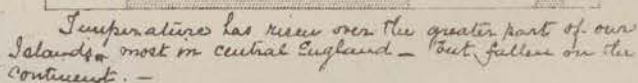 Temperature has risen over the greater part of our
Islands most in central England – but fallen on the
continent. –